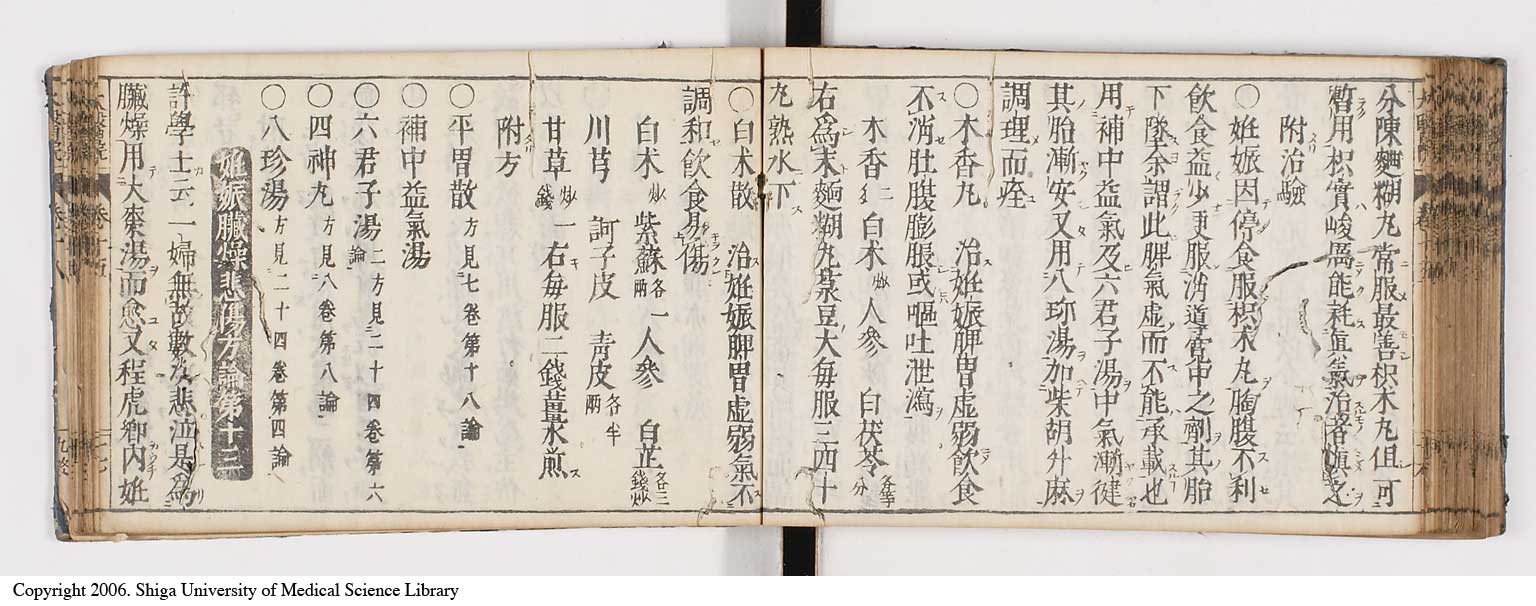 分陳麵糊丸常服最善枳朮丸但可
暫用枳實峻厲能耗眞氣治者愼之
附治驗
〇姙娠因停食服枳朮丸胸腹不利
飲食益少更服消道寬中之劑其胎
下墜余謂此脾氣虛而不能承載也
用補中益氣及六君子湯中氣漸健
其胎漸安又用八珍湯加柴胡升麻
調理而痊
〇木香丸　治姙娠脾胃虛弱飲食
不消肚腹膨脹或嘔吐泄瀉
木香二白朮炒人參　白茯苓各等分
右爲末麵糊丸菉豆大每服三四十
丸熟水下
〇白朮散　治姙娠脾胃虛弱氣不
調和飲食易傷
白朮炒紫蘇各一兩人參　白芷各三錢炒
川芎　訶子皮　靑皮各半兩
甘草炒一錢右每服二錢薑水煎
附方
〇平胃散方見七卷第十八論
〇補中益氣湯
〇六君子湯二方見二十四卷第六論
〇四神丸方見八卷第八論
〇八珍湯方見二十四卷第四論
姙娠臟燥悲傷方論第十三
許學士云一婦無故數次悲泣是爲
臟燥用大棗湯而愈又程虎卿內姙
Copyright 2006. Shiga University of Medical Science Library